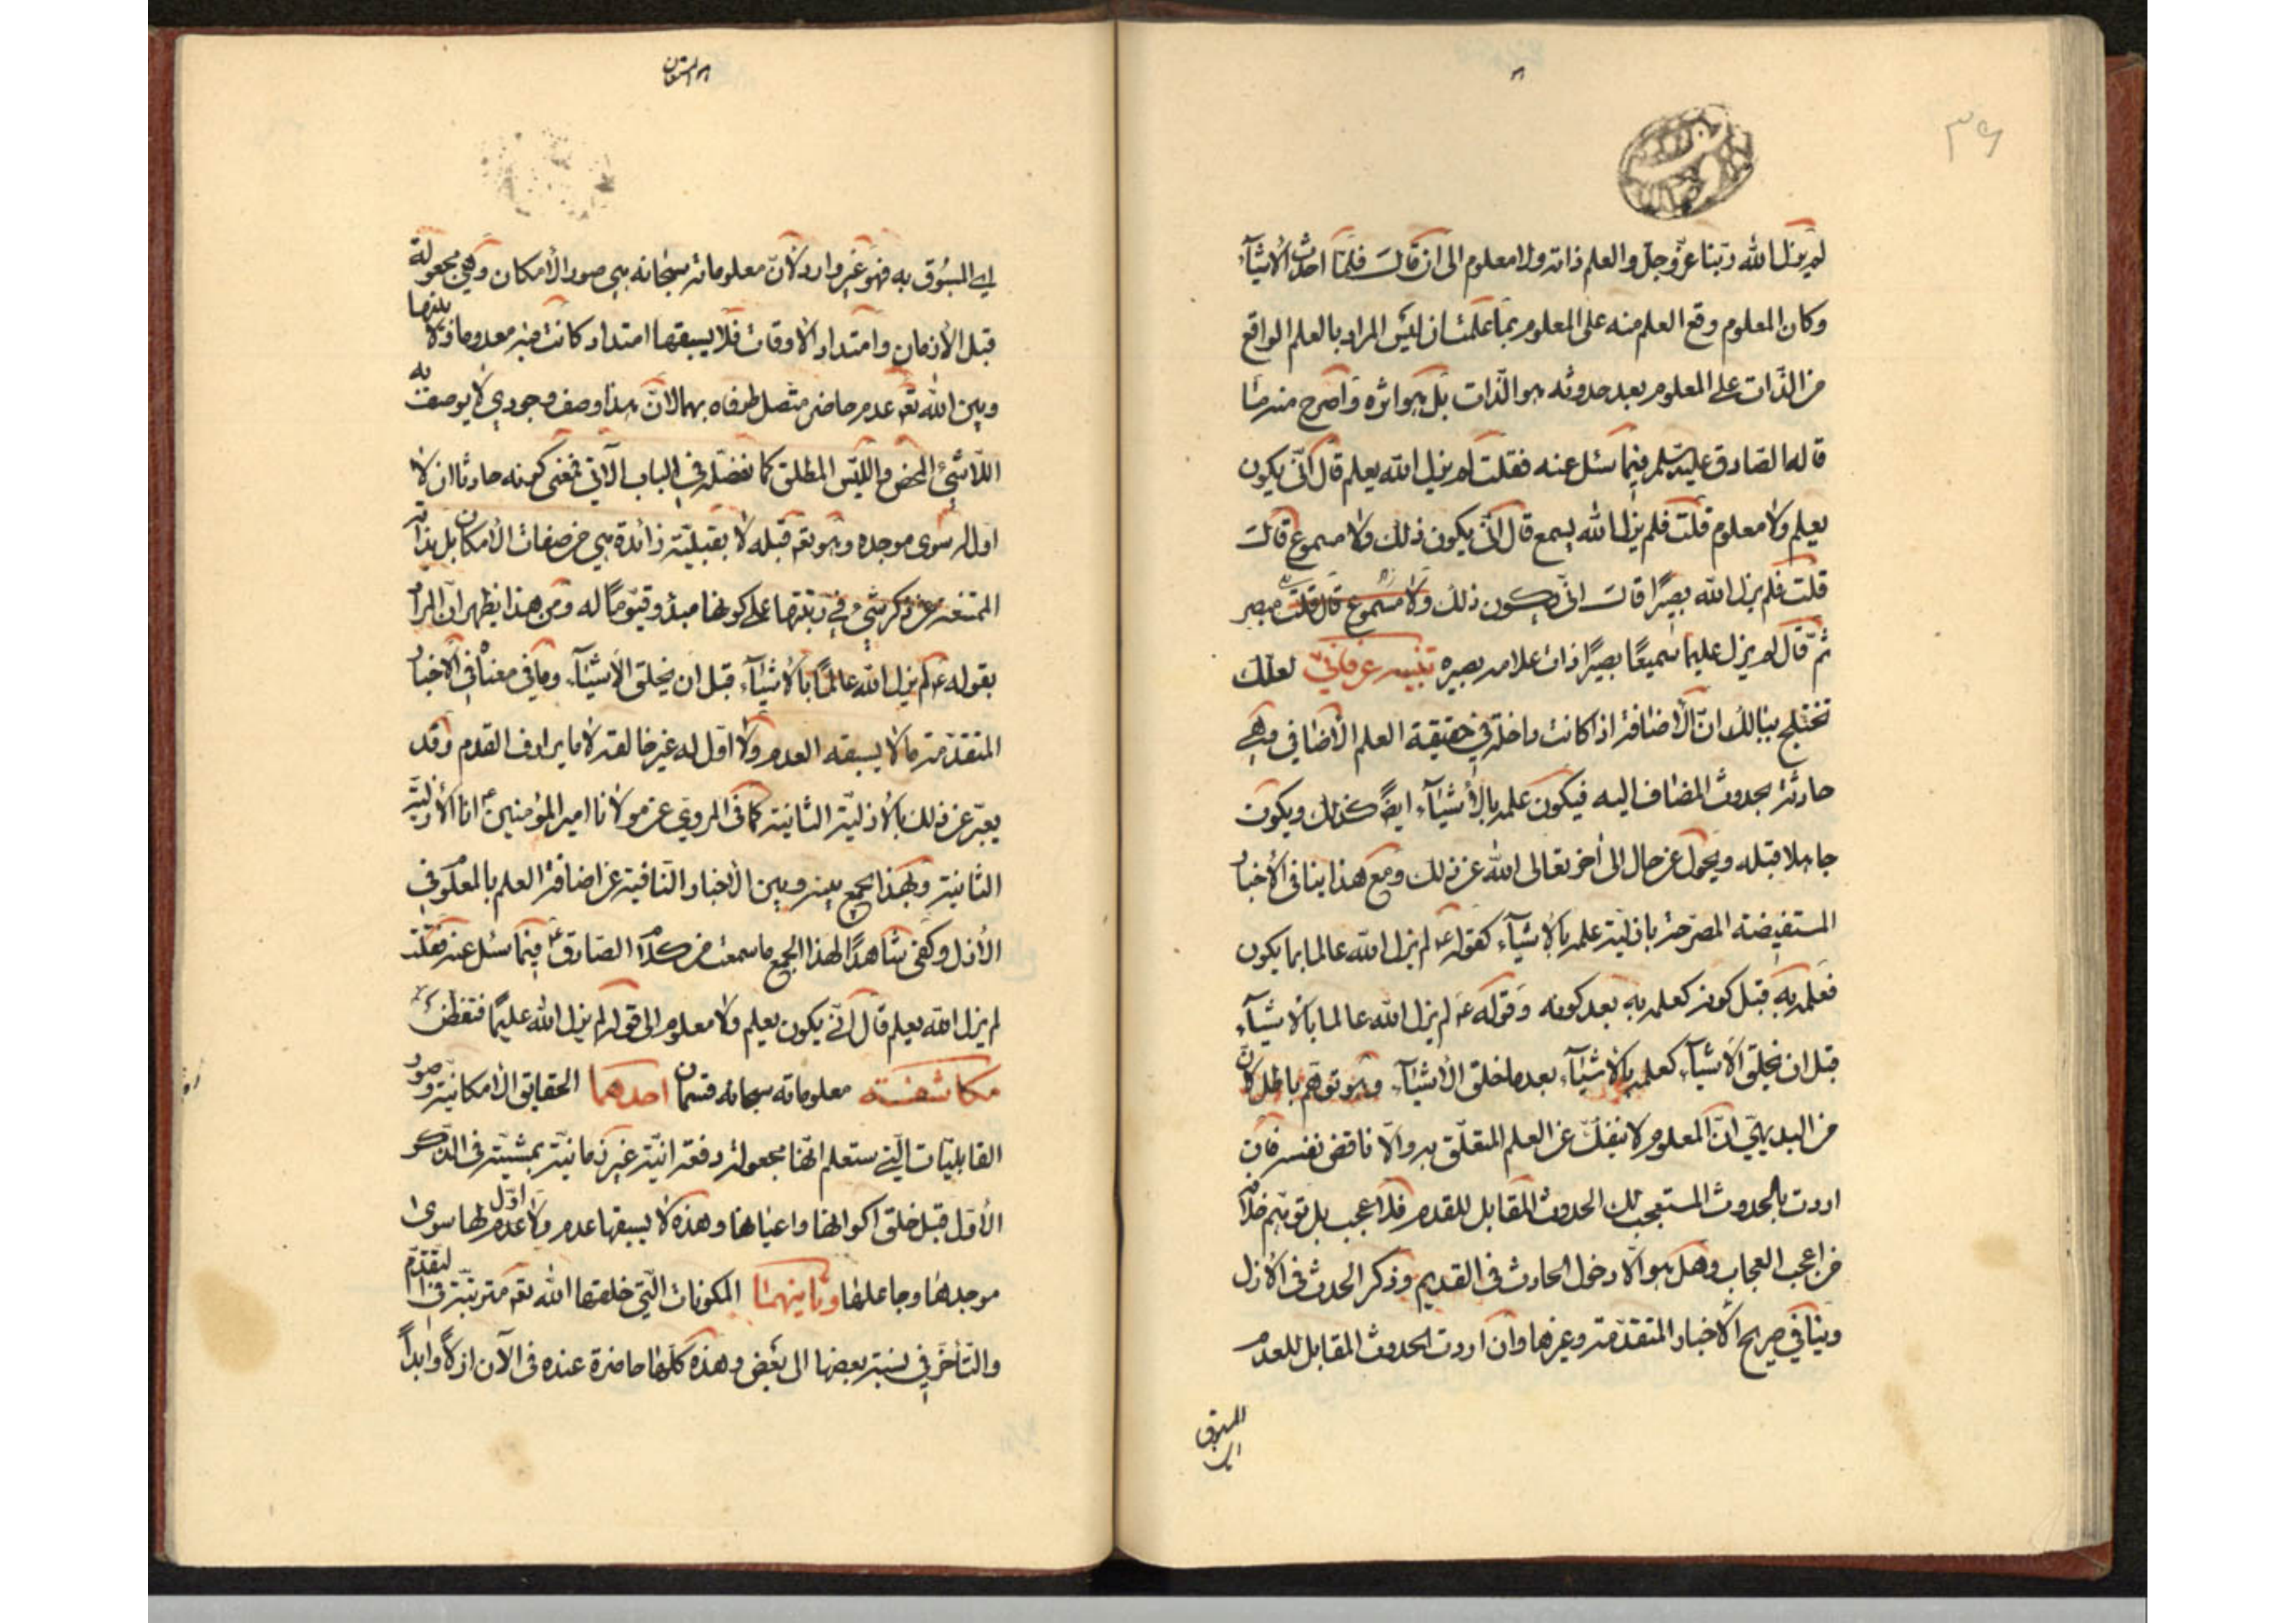 ٣٩
لم يزل الله ربنا عزّ وجلّ والعلم ذاته ولا معلوم الى ان قال فلمّا احدث الأشيآء
وكان المعلوم وقع العلم منه على المعلوم بما علمت ان ليس المراد بالعلم الواقع
من الذّات على المعلوم بعد حدوثه هو الذّات بل هو اثره وأصرح منه ما
قاله الصّادق عليه السّلم فيما سئل عنه فقلت لم يزل الله يعلم قال انّى يكون
يعلم ولا معلوم قلت فلم يزل الله يسمع قال انّى يكون ذلك ولا مسموع قال
قلت فلم يزل الله بصيرًا قال انّى يكون ذلك ولا مسموع قال قلت مبصر
ثمّ قال لم يزل عليما سميعًا بصيرًا ذات علامه بصيره تنبيه عرفانيّ لعلّك
تختلج ببالك انّ الأضافة اذا كانت داخلة في حقيقة العلم الأضافي وهي
حادثة بحدوث المضاف اليه فيكون علمه بالأشيآء ايضً كذلك ويكون
جاهلا قبله ويحوّل عن حال الى أخر تعالى الله عن ذلك ومع هذا ينافى الأخبار
المستفيضة المصرّحة بازليّة علمه بالأشيآء كقوله ع لم يزل الله عالما بما يكون
فعلمه به قبل كونه كعلمه به بعد كونه وقوله ع لم يزل الله عالما بالأشيآء
قبل ان يخلق الأشيآء كعلمه بالأشيآء بعد ما خلق الأشيآء وهو توهّم باطل لأنّ
من البديهيّ انّ المعلوم لا ينفكّ عن العلم المتعلّق به والّا ناقض نفسه فان
اردت بالحدوث المستعجب لك الحدوث المقابل للقدم فلا عجب بل توهّم خلافه
من اعجب العجاب وهل هو الّا دخول الحادث فى القديم وذكر الحدث فى الأزل
وينافي صريح الأخبار المتقدّمة وغيرها وان اردت الحدوث المقابل للعدم
المسبوق
اي المسبُوق به فهو غير وارد لأنّ معلوماته سبحانه هي صور الأمكان وهي مجعولة
قبل الأزمان وامتداد الأوقات فلا يسبقها امتداد كانت فيه معدومة ولا بينها
وبين الله تع عدم حاضر متّصل طرفاه بهما لانّ هذا وصف وجودي لا يوصف به
اللّاشيء المحض والليس المطلق كما نفصّله في الباب الآتي فمعنى كونه حادثا ان لا
اول له سوى موجده وهو تع قبله لا بقبليّة زائدة هي من صفات الأمكان بل بذاته
الممتنعة عن ذكر شيء في رتبتها على كونها مبدء وقيّومًا له ومن هذا يظهر ان المراد
بقوله ع لم يزل الله عالمًا بالأشيآء قبل ان يخلق الأشيآء وما في معناه في الأخبار
المتقدّمة ما لا يسبقه العدم ولا اوّل له غير خالقه لا ما يرادف القدم وقد
يعبّر عن ذلك بالأزليّة الثانية كما فى المروي عن مولانا امير المؤمنين ع انا الأزليّة
الثانية وبهذا يجمع بينه وبين الأخبار النّافية عن اضافة العلم بالمعلوم فى
الأزل وكفى شاهدًا لهذا الجمع ما سمعت من كلام الصّادق ع فيما سئل عنه فقلت
لم يزل الله يعلم قال انّى يكون يعلم ولا معلوم الى قوله لم يزل الله عليمًا فتفطّن
مكاشفة معلوماته سبحانه قسمان احدهما الحقايق الأمكانيّة وصور
القابليّات الّتي ستعلم انّها مجعولة دفعة انيّة غير زمانيّة بمشيّته فى الذّكر
الأوّل قبل خلق اكوانها واعيانها وهذه لا يسبقها عدم ولا اوّل عدم لها سوى
موجدها وجاعلها وثانيهما المكونات الّتي خلقها الله تع مترتبّة في التّقدّم
والتّأخّر في نسبة بعضها الى بعض وهذه كلّها حاضرة عنده فى الآن ازلًا وابدًا